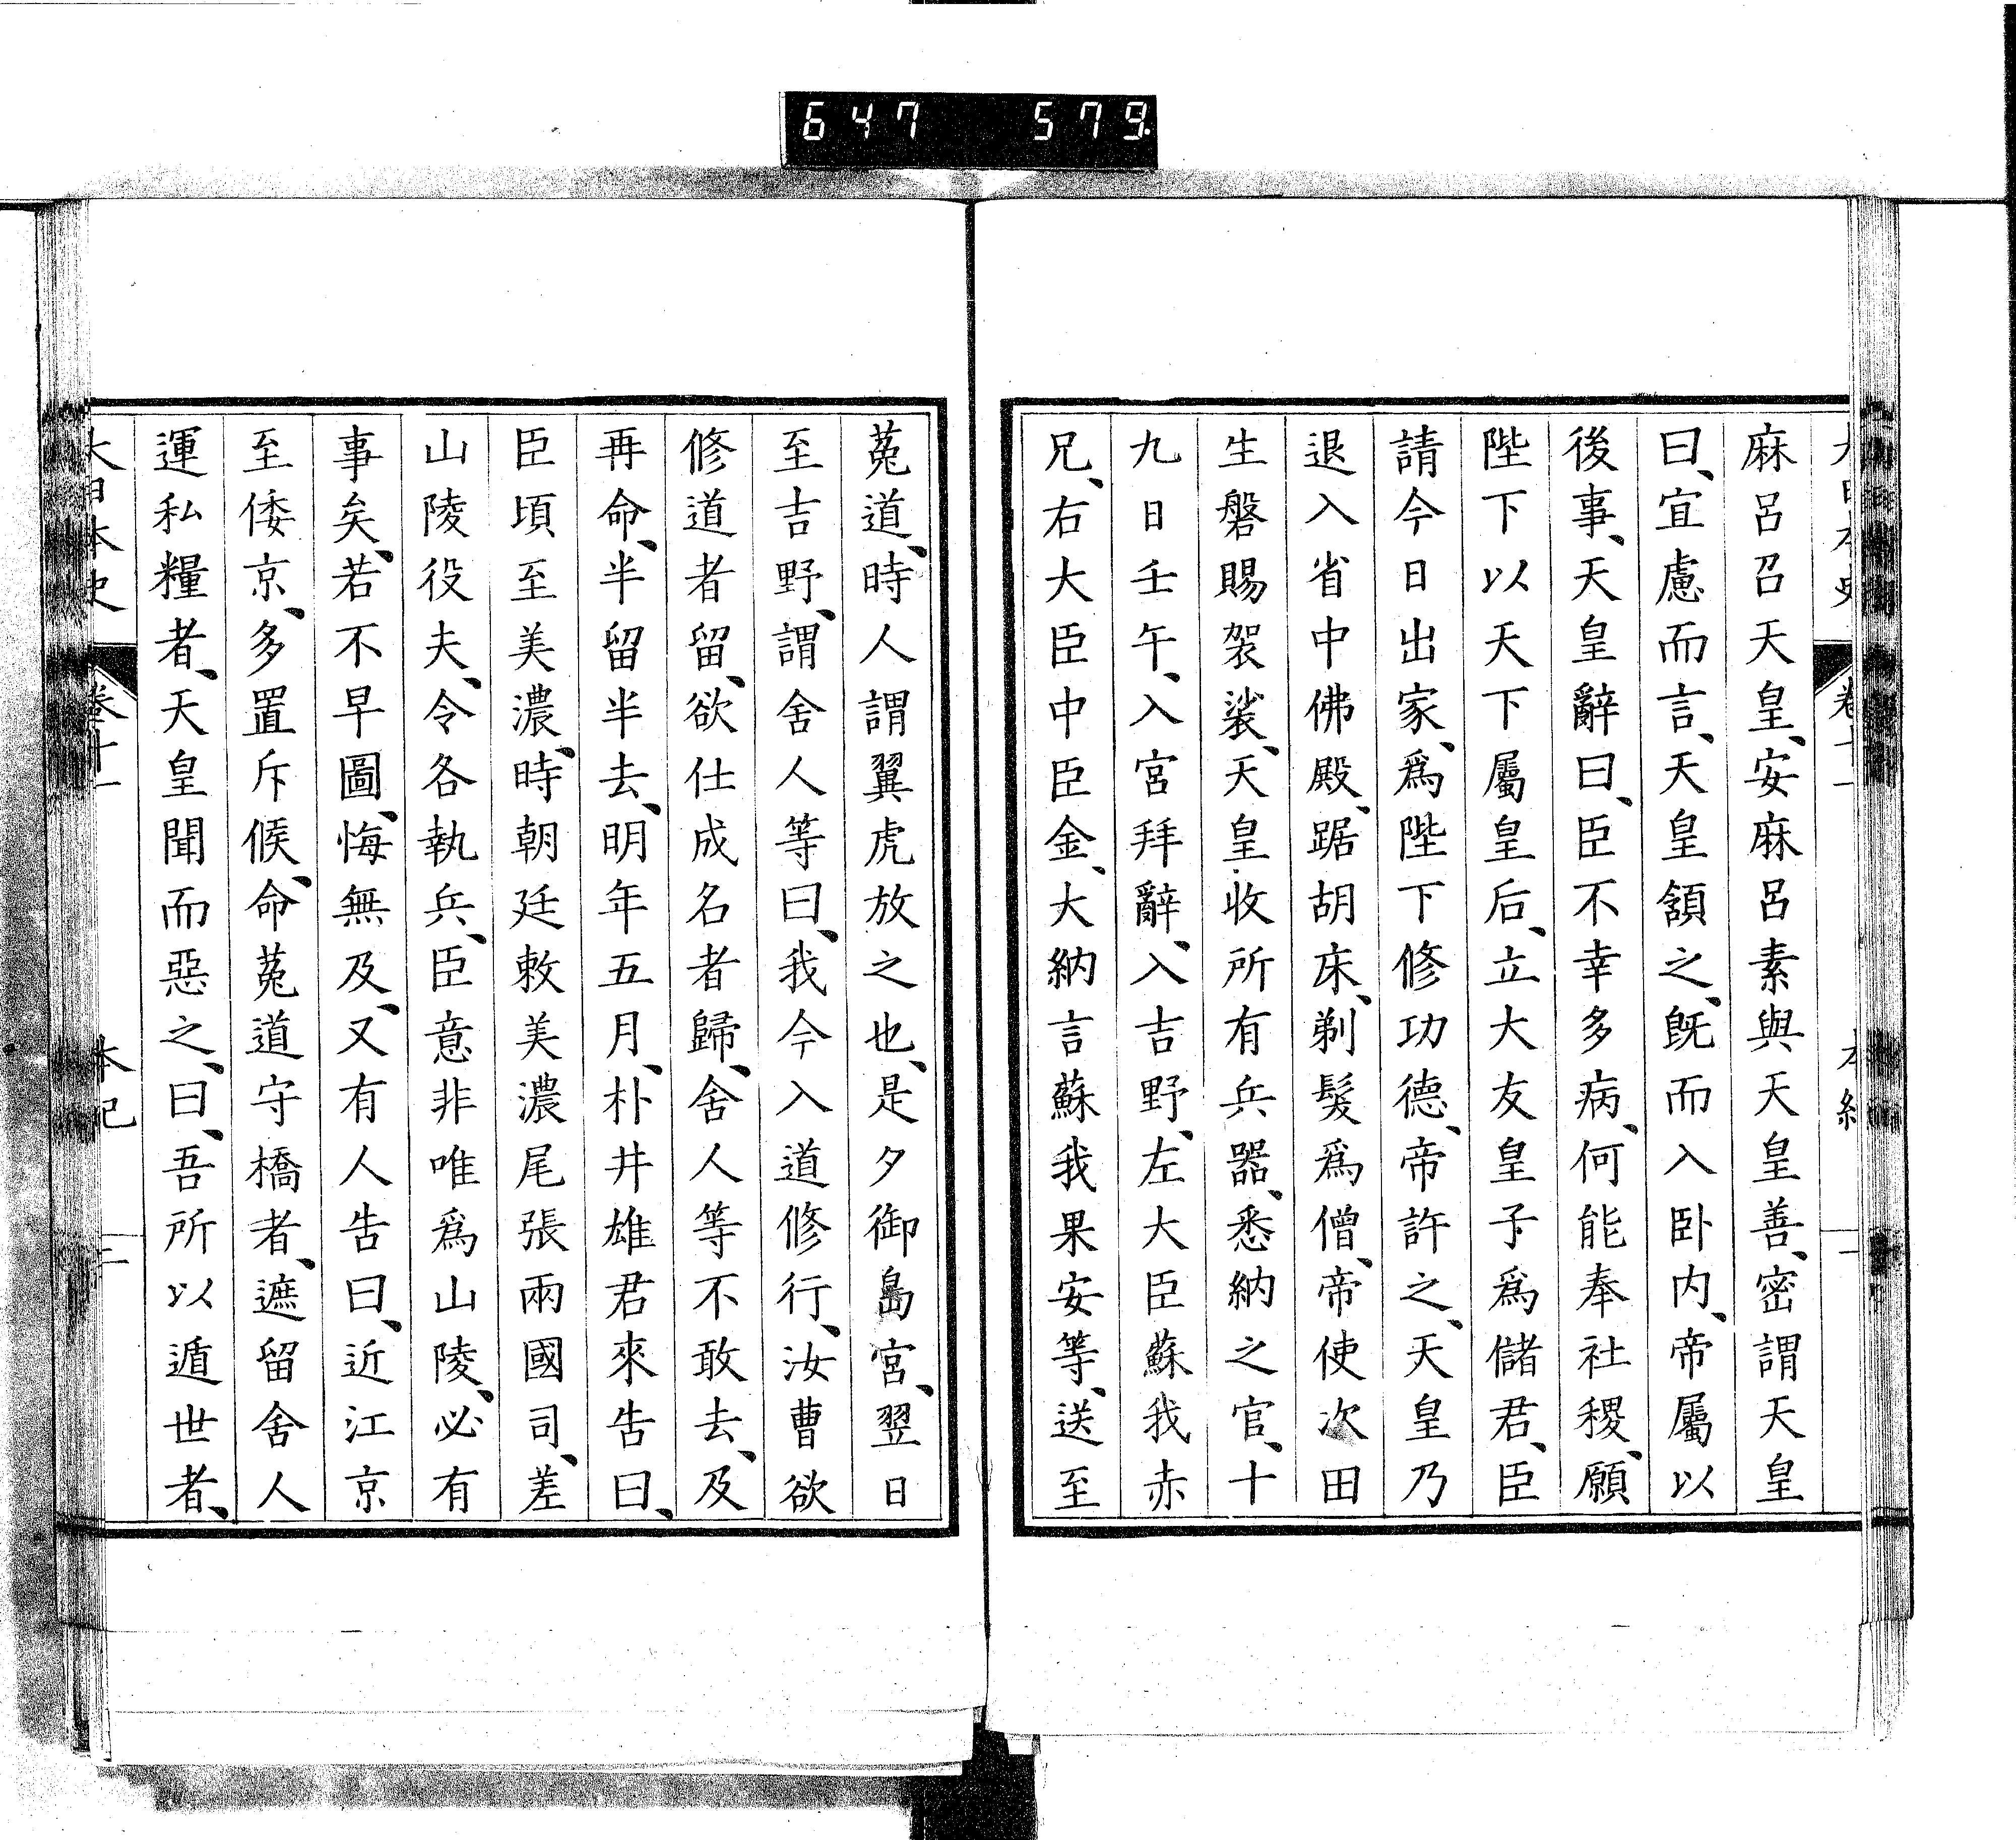 647 579
麻呂召天皇、安麻呂素與天皇善、密謂天皇
曰、宜慮而言、天皇頷之、既而入卧内、帝屬以
後事、天皇辭曰、臣不幸多病、何能奉社稷、願
陛下以天下屬皇后、立大友皇子爲儲君、臣
請今日出家、爲陛下修功德、帝許之、天皇乃
退入省中佛殿、踞胡床、剃髮爲僧、帝使次田
生磐賜袈裟、天皇收所有兵器、悉納之官、十
九日壬午、入宮拜辭、入吉野、左大臣蘇我赤
兄、右大臣中臣金、大納言蘇我果安等、送至
菟道、時人謂翼虎放之也、是夕御島宮、翌日
至吉野、謂舍人等曰、我今入道修行、汝曹欲
修道者留、欲仕成名者歸、舍人等不敢去、及
再命、半留半去、明年五月、朴井雄君來告曰、
臣頃至美濃、時朝廷敕美濃尾張兩國司、差
山陵役夫、令各執兵、臣意非唯爲山陵、必有
事矣、若不早圖、悔無及、又有人告曰、近江京
至倭京、多置斥候、命菟道守橋者、遮留舍人
運私糧者、天皇聞而惡之、曰、吾所以遁世者、
大日本史 卷十一 本紀